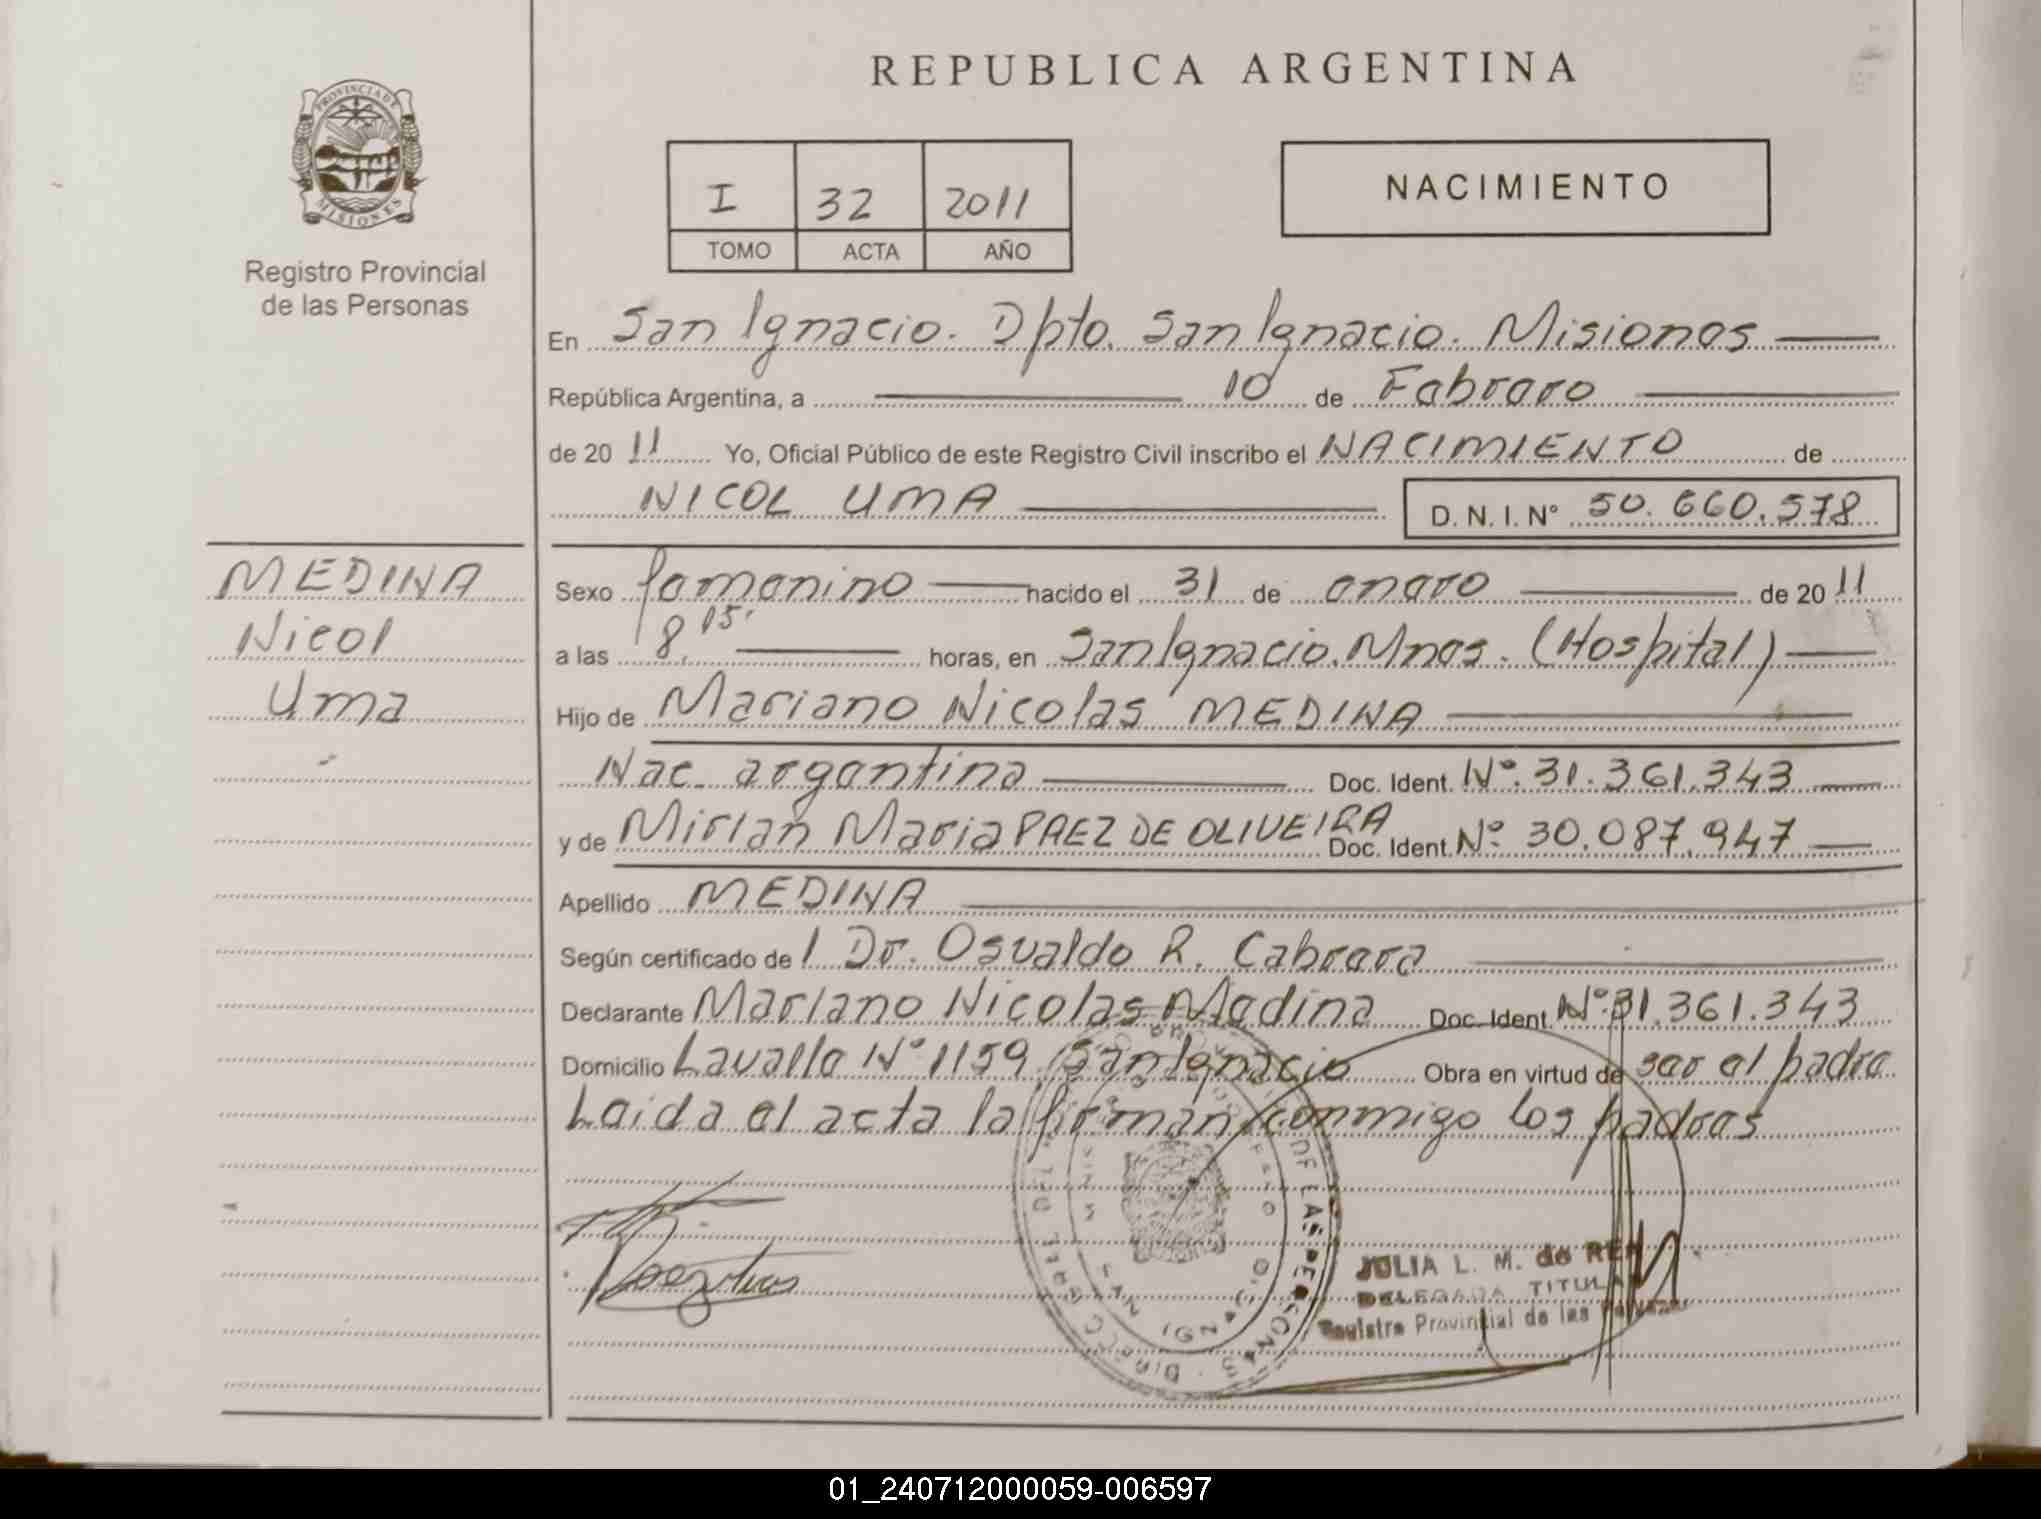 REPUBLICA ARGENTINA
PROVINCIA DE
MISIONES
Registro Provincial
de las Personas
I 32 2011
TOMO ACTA AÑO
NACIMIENTO
En San Ignacio. Dpto. San Ignacio. Misiones
República Argentina, a 10 de Febrero
de 20 11 Yo, Oficial Público de este Registro Civil inscribo el NACIMIENTO de
NICOL UMA D. N. I. N° 50.660.578
MEDINA
Nicol
Uma
Sexo femenino nacido el 31 de enero de 20 11
a las 8,15. horas, en San Ignacio. Mnes. (Hospital)
Hijo de Mariano Nicolas MEDINA
Nac. argentina Doc. Ident. N°. 31.361.343
y de Mirian Maria PAEZ DE OLIVEIRA Doc. Ident. N°. 30.087.947
Apellido MEDINA
Según certificado de l Dr. Osvaldo R. Cabrera
Declarante Mariano Nicolas Medina Doc. Ident. N°. 31.361.343
Domicilio Lavalle N° 1159. San Ignacio Obra en virtud de ser el padre
Leida el acta la firman conmigo los padres
DE LAS PERSONAS
SAN IGNACIO
JULIA L. M. de
DELEGADA TITULAR
Registro Provincial de las Personas
01_240712000059-006597